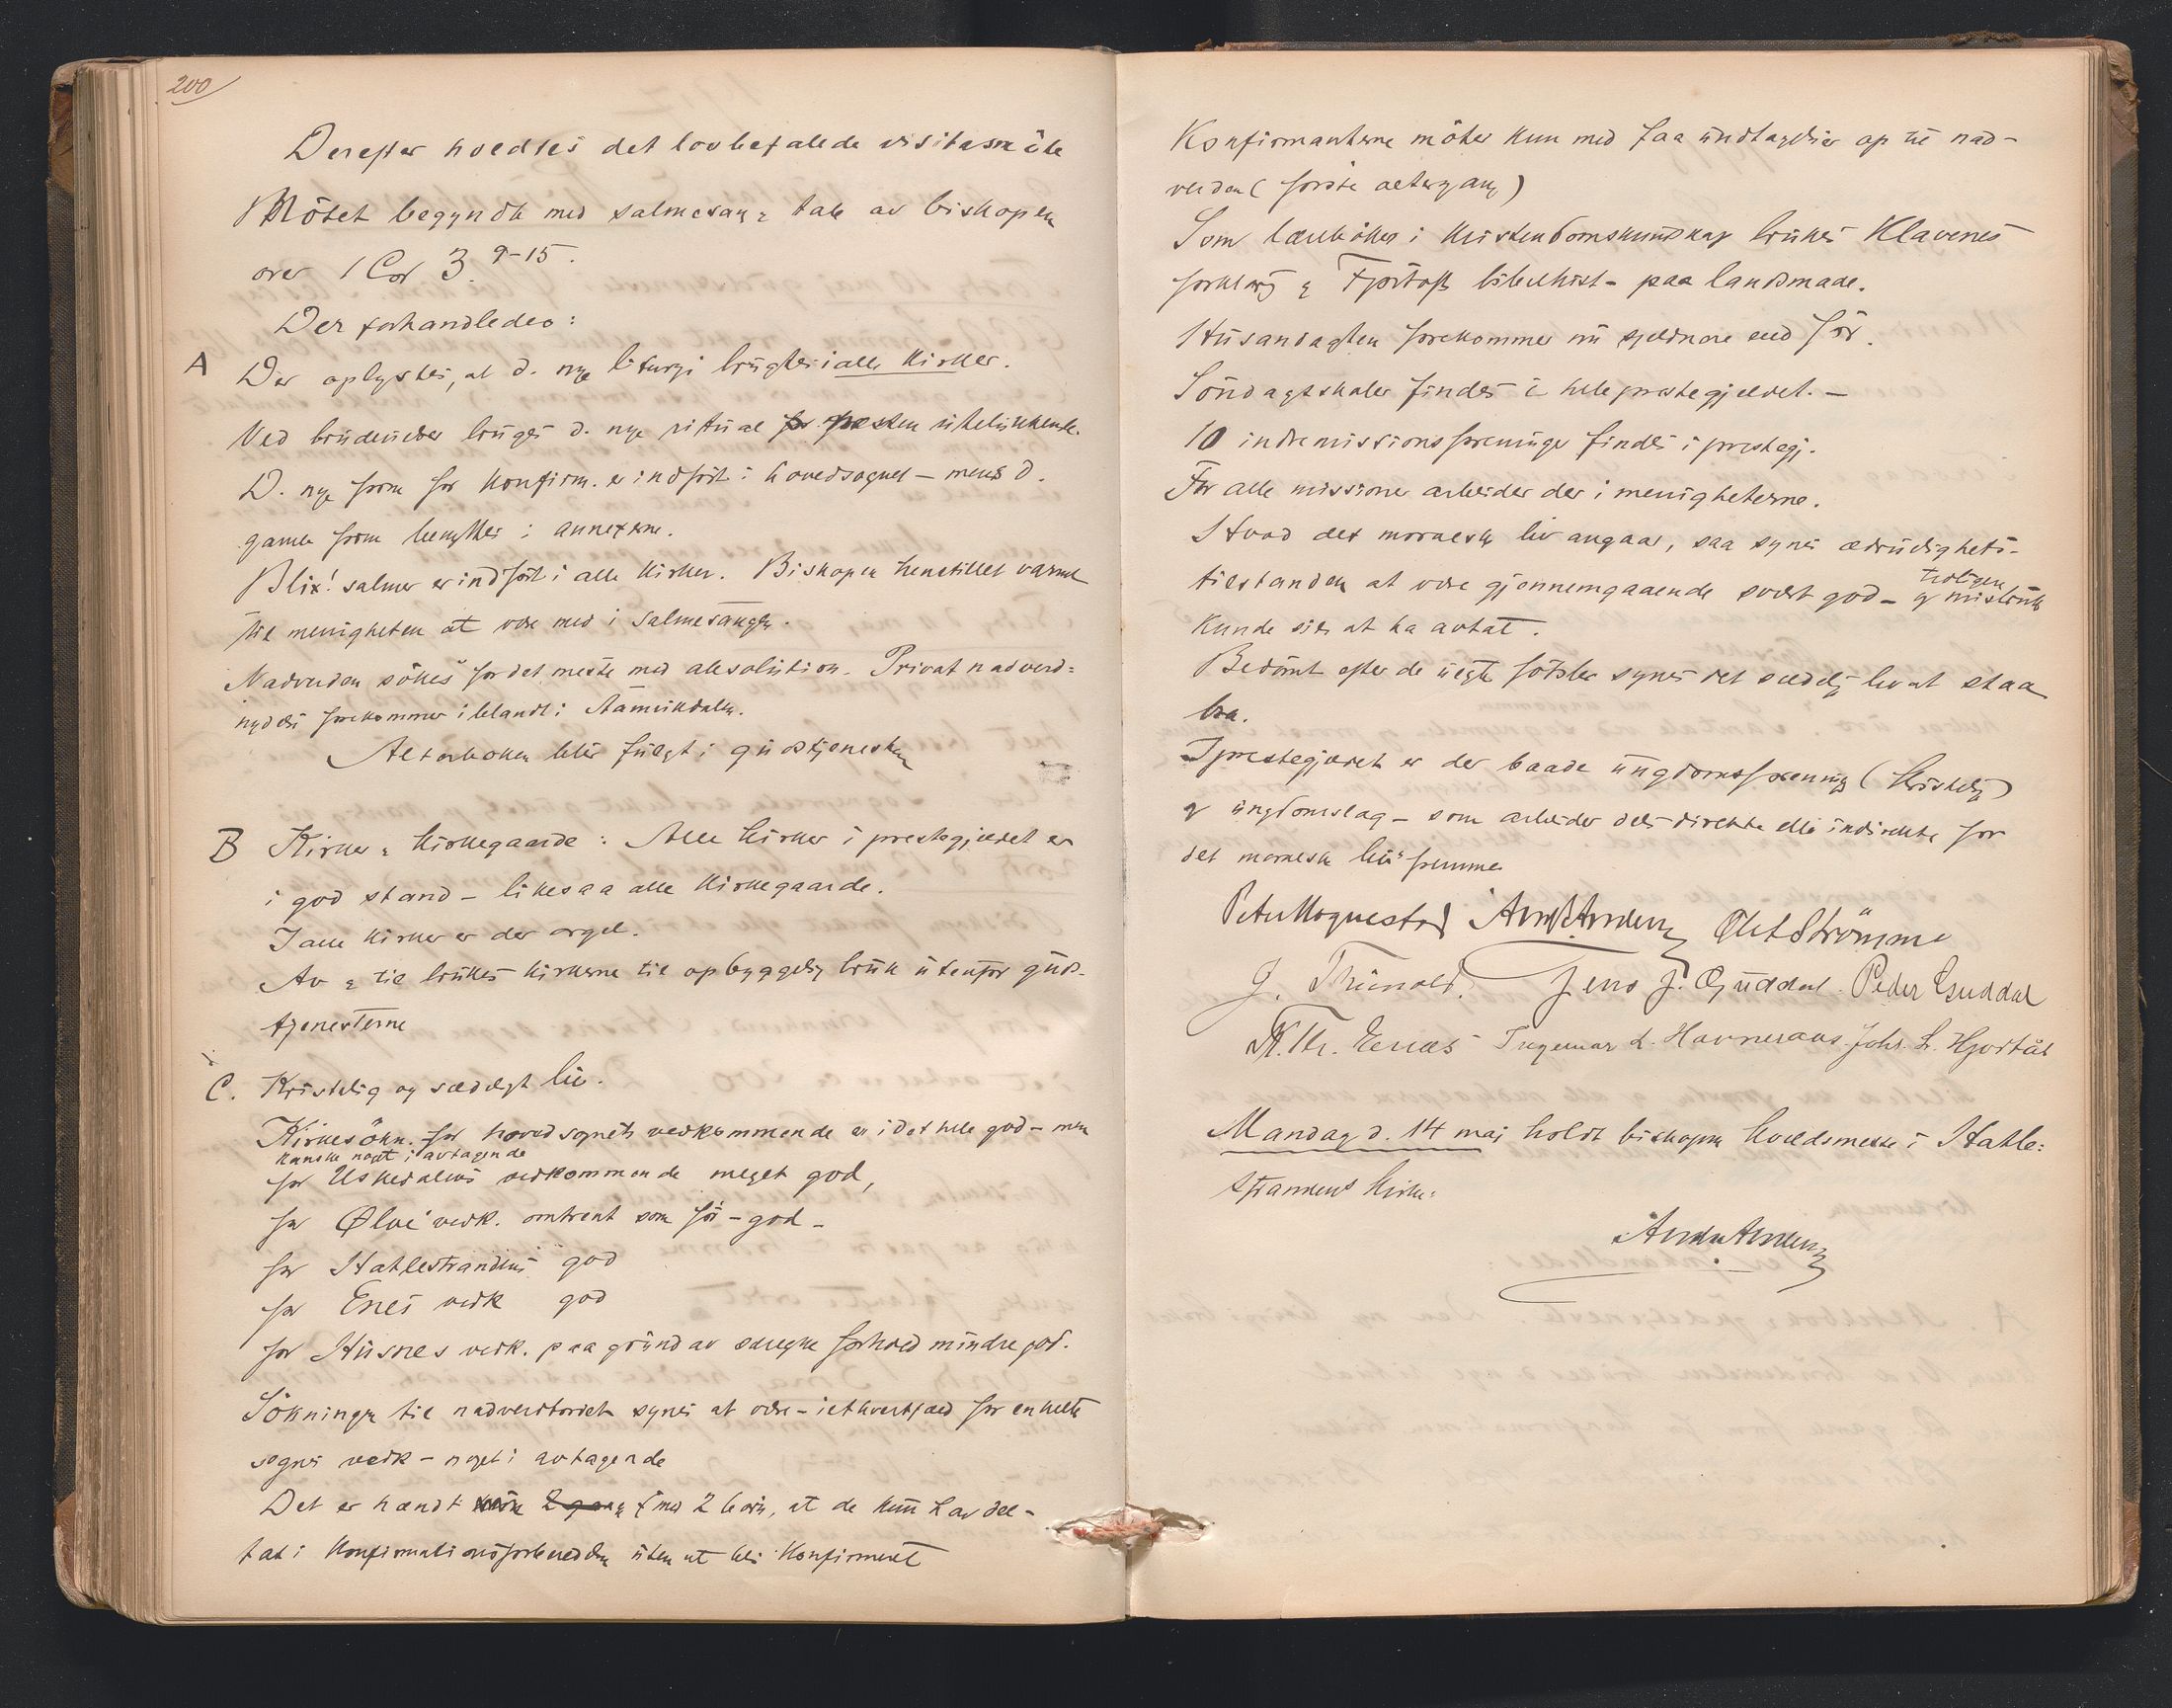 200
Derefter holdtes det lovbefalede visitasmöte
Mötet begyndte med salmesang & tale av biskopen
over 1 Cor 3. 9-15.
Der forhandledes:
A Der oplystes, at d. nye liturgi brugtes i alle kirker.
Ved brudevielser bruges d. nye ritual for næsten utelukkende.
D. nye form for konfirm. er indført i hovedsognet – mens d.
gamle form benyttes i annexerne.
Blix' salmer er indført i alle kirker. Biskopen henstillet varmt
til menigheten at være med i salmesangen.
Nadverden sökes for det meste med absolution. Privat nadverd-
nydelse forekommer iblandt i Aamvikdalen.
Alterboken blir fulgt i gudstjenesten
B Kirker & kirkegaarde: Alle kirker i prestegjeldet er
i god stand – likesaa alle kirkegaarde.
I alle kirker er der orgel.
Av & til brukes kirkerne til opbyggelig bruk utenfor guds-
tjenesterne
C. Kristelig og sædeligt liv.
Kirkesökn. for hovedsognets vedkommende er i det hele god – men
kanske noget i avtagende
for Uskedalens vedkommende meget god,
for Ølve's vedk. omtrent som før – god –
for Hatlestrandens god
for Enes vedk god
for Husnes vedk. paa grund av særegne forhold mindre god.
Sökningen til nadverdbordet synes at være – i ethvert fald for enkelte
sognes vedk – noget i avtagende
Det er hændt 2 gang med 2 börn, at de kun har del-
tat i konfirmationsforberedelsen uten at bli konfirmert
Konfirmanterne möter kun med faa undtagelser op til nad-
verden (første altergang)
Som læreböker i kristendomskundskap brukes Klavenes
forklaring & Fjörtoft bibelhist – paa landsmaal.
Husandagten forekommer nu sjeldnere end før.
Söndagsskoler findes i hele prestegjeldet. –
10 indremissionsforeninger findes i prestegj.
For alle missioner arbeides der i menigheterne.
Hvad det moralske liv angaar, saa synes ædrueligheds-
tilstanden at være gjennemgaaende svært god – og misbruk
tydligen
kunde sies at ha avtat.
Bedömt efter de uegte fødsler synes det sædelig liv at staa
bra.
I prestegjeldet er der baade ungdomsforening (kristelig)
& ungdomslag – som arbeider dels direkte eller indirekte for
det moralske livs fremme
Peter Hognestad Anders Andersen Olaf Strömme
J. Thunold. Jens J. Guddal. Peder Guddal
K. Th. Eenæs Ingemar L. Havneraas Johs. L. Hjortås
Mandag d. 14 mai holdt biskopen kveldsmesse i Hatle-
strandens kirke.
Anders Andersen